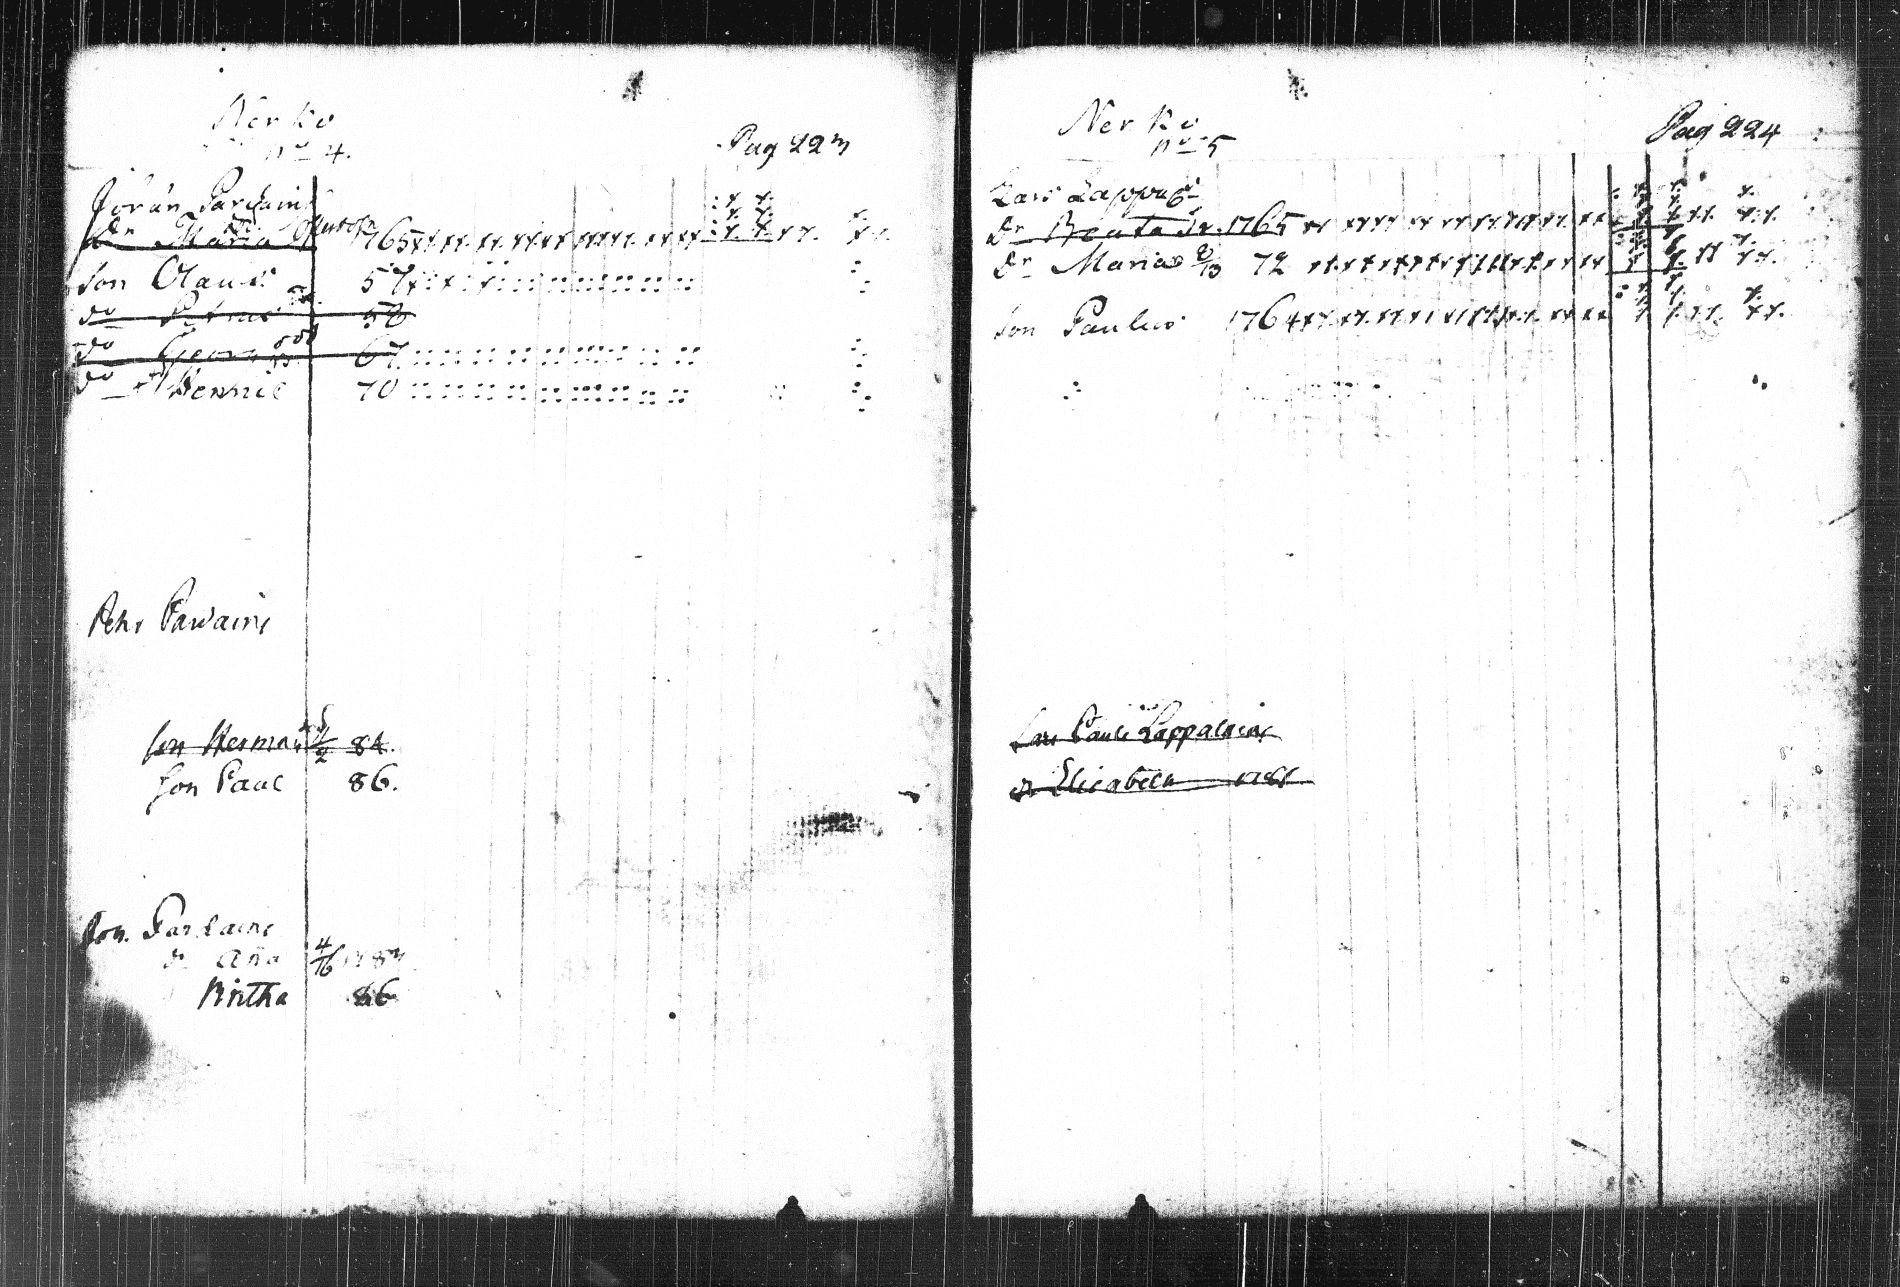 Nerko
no 4.
Pag 223
Jöran Pardain
Dr Maria 1765
Son Olaus 57
do Petrus 58
do Georg 67
do Henric 70
Pehr Parvains
Son Herman 84.
Son Paul 86.
Jon. Pardains
d. Aña 4/16 1784
Britha 86
Nerko
no 5
Pag 224
Lars Lappal
Dr Beata 1765
Dr Maria 72
Son Paulus 1764
Lars Pauls Lappalains
dr Elisabeth 1781